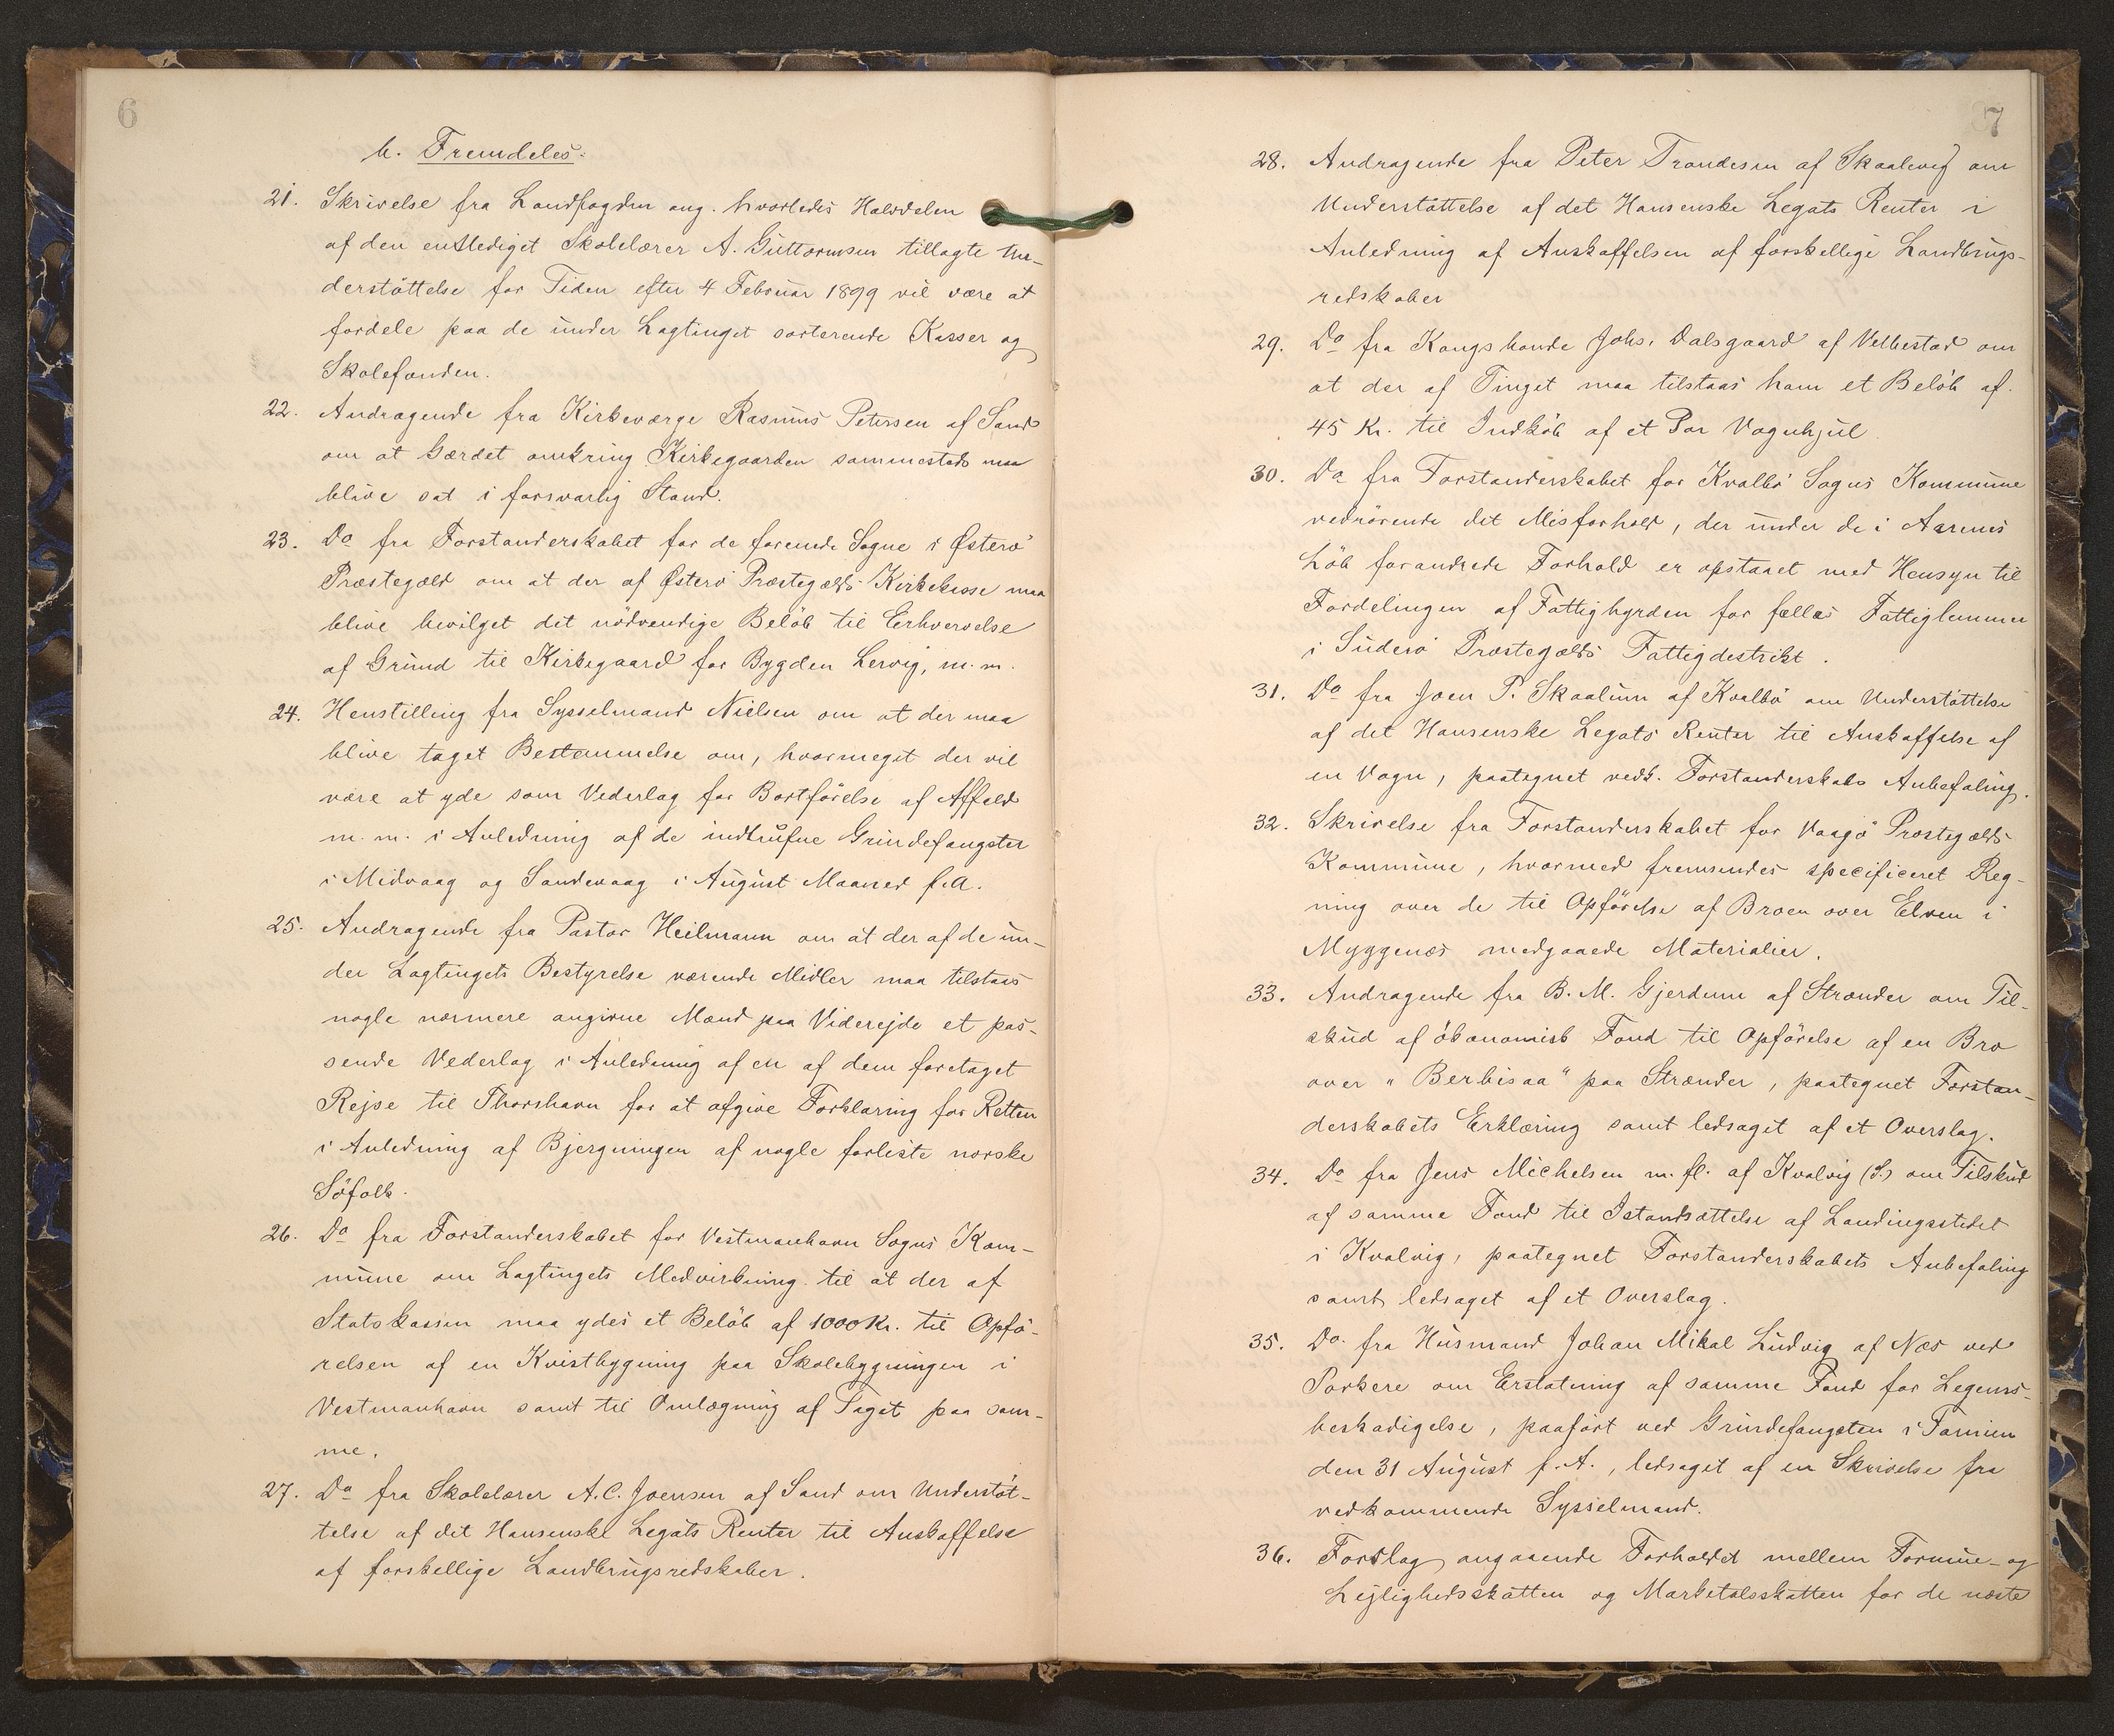 6
b. Fremdeles:
21. Skrivelse fra Landfogden ang. hvorledes Halvdelen
af den entlediget Skolelærer A. Guttormsen tillagte Un-
derstöttelse for Tiden efter 4 Februar 1899 vil være at
fordele paa de under Lagtinget sorterende Kasser og
Skolefonden.
22. Andragende fra Kirkeværge Rasmus Petersen af Sand
om at Gærdet omkring Kirkegaarden sammesteds maa
blive sat i forsvarlig Stand.
23. Do fra Forstanderskabet for de forenede Sogne i Østerö
Præstegæld om at der af Østerö Præstegælds Kirkekasse maa
blive bevilget det nödvendige Belöb til Erhvervelse
af Grund til Kirkegaard for Bygden Lervig, m.m.
24. Henstilling fra Sysselmand Nielsen om at der maa
blive taget Bestemmelse om, hvormeget der vil
være at yde som Vederlag for Bortförelse af Affald
m.m. i Anledning af de indtrufne Grindefangster
i Midvaag og Sandevaag i August Maaned f.A.
25. Andragende fra Pastor Heilmann om at der af de un-
der Lagtingets Bestyrelse værende Midler maa tilstaas
nogle nærmere angivne Mænd paa Viderejde et pas-
sende Vederlag i Anledning af en af dem foretaget
Rejse til Thorshavn for at afgive Forklaring for Retten
i Anledning af Bjergningen af nogle forliste norske
Söfolk.
26. Do fra Forstanderskabet for Vestmanhavn Sogns Kom-
mune om Lagtingets Medvirkning til at der af
Statskassen maa ydes et Belöb af 1000 Kr. til Opfö-
relsen af en Kvistbygning paa Skolebygningen i
Vestmanhavn samt til Omlægning af Taget paa sam-
me.
27. Do fra Skolelærer A.C. Joensen af Sand om Understöt-
telse af det Hansenske Legats Renter til Anskaffelse
af forskellige Landbrugsredskaber.
7
28. Andragende fra Peter Trondesen af Skaalevig om
Understöttelse af det Hansenske Legats Renter i
Anledning af Anskaffelsen af forskellige Landbrugs-
redskaber
29. Do fra Kongsbonde Johs. Dalsgaard af Velbestad om
at der af Tinget maa tilstaas ham et Belöb af
45 Kr. til Indköb af et Par Vognhjul.
30. Do fra Forstanderskabet for Kvalbö Sogns Kommune
vedrörende det Misforhold, der under de i Aarenes
Löb forandrede Forhold er opstaaet med Hensyn til
Fordelingen af Fattigbyrden for fælles Fattiglemmer
i Suderö Præstegælds Fattigdistrikt.
31. Do fra Joen P. Skaalum af Kvalbö om Understöttelse
af det Hansenske Legats Renter til Anskaffelse af
en Vogn, paategnet vedk. Forstanderskabs Anbefaling.
32. Skrivelse fra Forstanderskabet for Vaagö Præstegælds
Kommune, hvormed fremsendes specificeret Reg-
ning over de til Opförelse af Broen over Elven i
Myggenæs medgaaede Materialier.
33. Andragende fra B. M. Gjerdum af Strænder om Til-
skud af ökonomisk Fond til Opförelse af en Bro
over "Berbisaa" paa Strænder, paategnet Forstan-
derskabets Erklæring samt ledsaget af et Overslag.
34. Do fra Jens Michelsen m. fl. af Kvalvig (S.) om Tilskud
af samme Fond til Istandsættelse af Landingsstedet
i Kvalvig, paategnet Forstanderskabets Anbefaling
samt ledsaget af et Overslag.
35. Do. fra Husmand Johan Mikal Ludvig af Næs ved
Porkere om Erstatning af samme Fond for Legems-
beskadigelse, paafört ved Grindefangsten i Famien
den 31 August f.A., ledsaget af en Skrivelse fra
vedkommende Sysselmand.
36. Forslag angaaende Forholdet mellem Formue- og
Lejlighedsskatten og Marketalsskatten for de næste